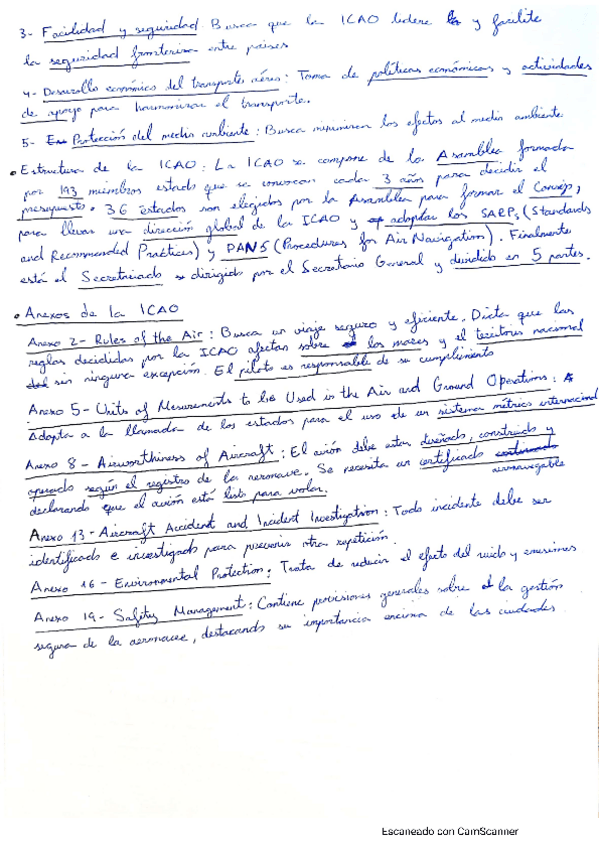 3- Facilidad y seguridad. Busca que la ICAO lidere y facilite
la seguridad fronteriza entre países
4- Desarrollo económico del transporte aéreo: Toma de políticas económicas y actividades
de apoyo para harmonizar el transporte.
5- Protección del medio ambiente: Busca minimizar los efectos al medio ambiente
• Estructura de la ICAO: La ICAO se compone de la Asamblea formada
por 193 miembros estado que se convocan cada 3 años para decidir el
presupuesto. 36 estados son elegidos por la Asamblea para formar el Consejo,
para llevar una dirección global de la ICAO y adoptar los SARPs (Standards
and Recommended Practices) y PANS (Procedures for Air Navigation). Finalmente
está el Secretariado dirigido por el Secretario General y dividido en 5 partes.
• Anexos de la ICAO
Anexo 2- Rules of the Air: Busca un viaje seguro y eficiente. Dicta que las
reglas decididas por la ICAO afectan sobre los mares y el territorio nacional
sin ninguna excepción. El piloto es responsable de su cumplimiento
Anexo 5- Units of Mesurements to be Used in the Air and Ground Operations:
Adopta a la llamada de los estados para el uso de un sistema métrico internacional
Anexo 8- Airworthiness of Aircraft: El avión debe estar diseñado, construido y
operado según el registro de la aeronave. Se necesita un certificado
aeronavegable
declarando que el avión está listo para volar.
Anexo 13- Aircraft Accident and Incident Investigation: Todo incidente debe ser
identificado e investigado para prevenir otra repetición.
Anexo 16- Environmental Protection: Trata de reducir el efecto del ruido y emisiones
Anexo 19- Safety Management: Contiene previsiones generales sobre la gestión
segura de la aeronave, destacando su importancia encima de las ciudades.
Escaneado con CamScanner